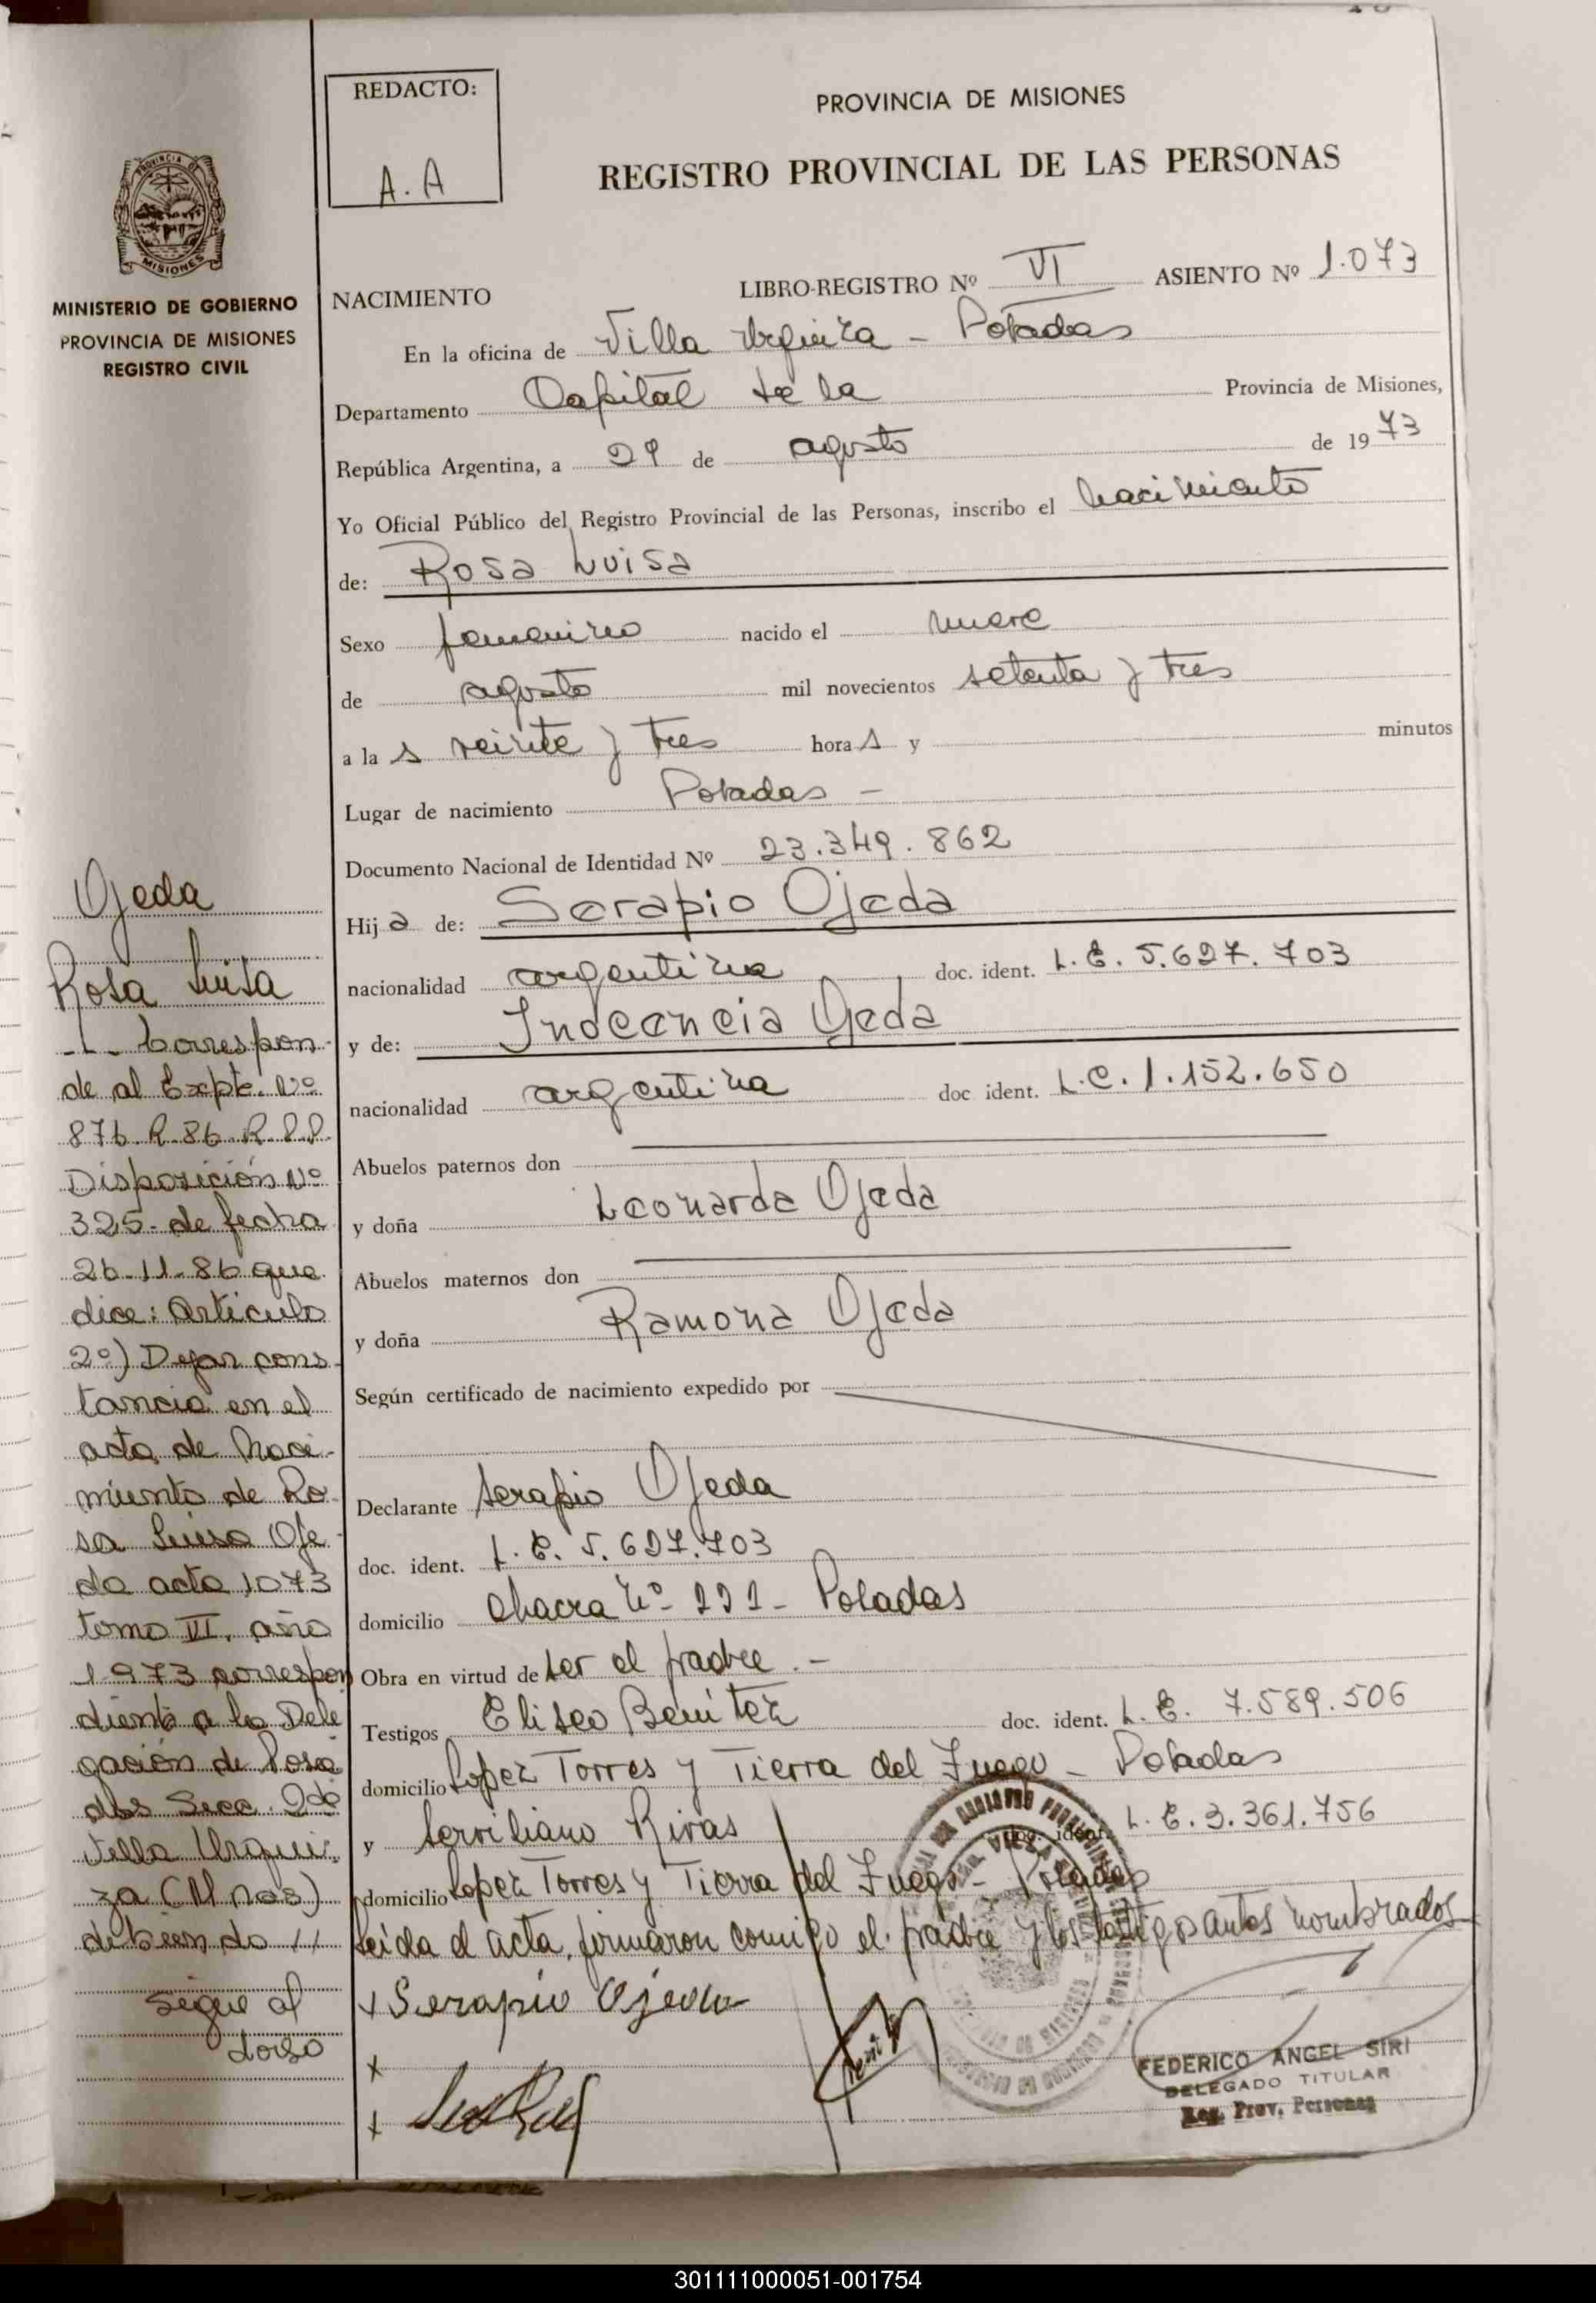 REDACTO:
A.A
PROVINCIA DE MISIONES
REGISTRO PROVINCIAL DE LAS PERSONAS
MINISTERIO DE GOBIERNO
PROVINCIA DE MISIONES
REGISTRO CIVIL
NACIMIENTO LIBRO-REGISTRO Nº VI ASIENTO Nº 1.073
En la oficina de Villa Urquiza - Posadas
Departamento Capital de la Provincia de Misiones,
República Argentina, a 29 de agosto de 1973
Yo Oficial Público del Registro Provincial de las Personas, inscribo el nacimiento
de: Rosa Luisa
Sexo femenino nacido el nueve
de agosto mil novecientos setenta y tres
a la s veinte y tres hora s y minutos
Lugar de nacimiento Posadas -
Documento Nacional de Identidad Nº 23.349.862
Hij a de: Serapio Ojeda
nacionalidad argentina doc. ident. L.E. 5.627.703
y de: Indecencia Ojeda
nacionalidad argentina doc ident. L.C. 1.152.650
Abuelos paternos don
y doña Leonarda Ojeda
Abuelos maternos don
y doña Ramona Ojeda
Según certificado de nacimiento expedido por
Declarante Serapio Ojeda
doc. ident. L.E. 5.627.703
domicilio Chacra Nº 221 - Posadas
Obra en virtud de ser el padre.-
Testigos Eliseo Benitez doc. ident. L.E. 7.589.506
domicilio Lopez Torres y Tierra del Fuego - Posadas
y Serviliano Rivas doc. ident. L.E. 3.361.756
domicilio Lopez Torres y Tierra del Fuego - Posadas
Leida el acta, firmaron conmigo el padre y los testigos antes nombrados
x Serapio Ojeda
x
x
FEDERICO ANGEL SIRI
DELEGADO TITULAR
Reg. Prov. Personas
Ojeda
Rosa Luisa
-1- Correspon-
de al Expte. Nº
876.R.86.R.P.P.
Disposición Nº
325- de fecha
26-11-86 que
dice: Artículo
2º) Dejar cons-
tancia en el
acta de Naci-
miento de Ro-
sa Luisa Oje-
da acta 1073
tomo VI, año
1973 correspon
diente a la Dele
gación de Posa
das Secc. 2da
Villa Urqui-
za (Mnes)
debiendo //
Sigue al
dorso
301111000051-001754